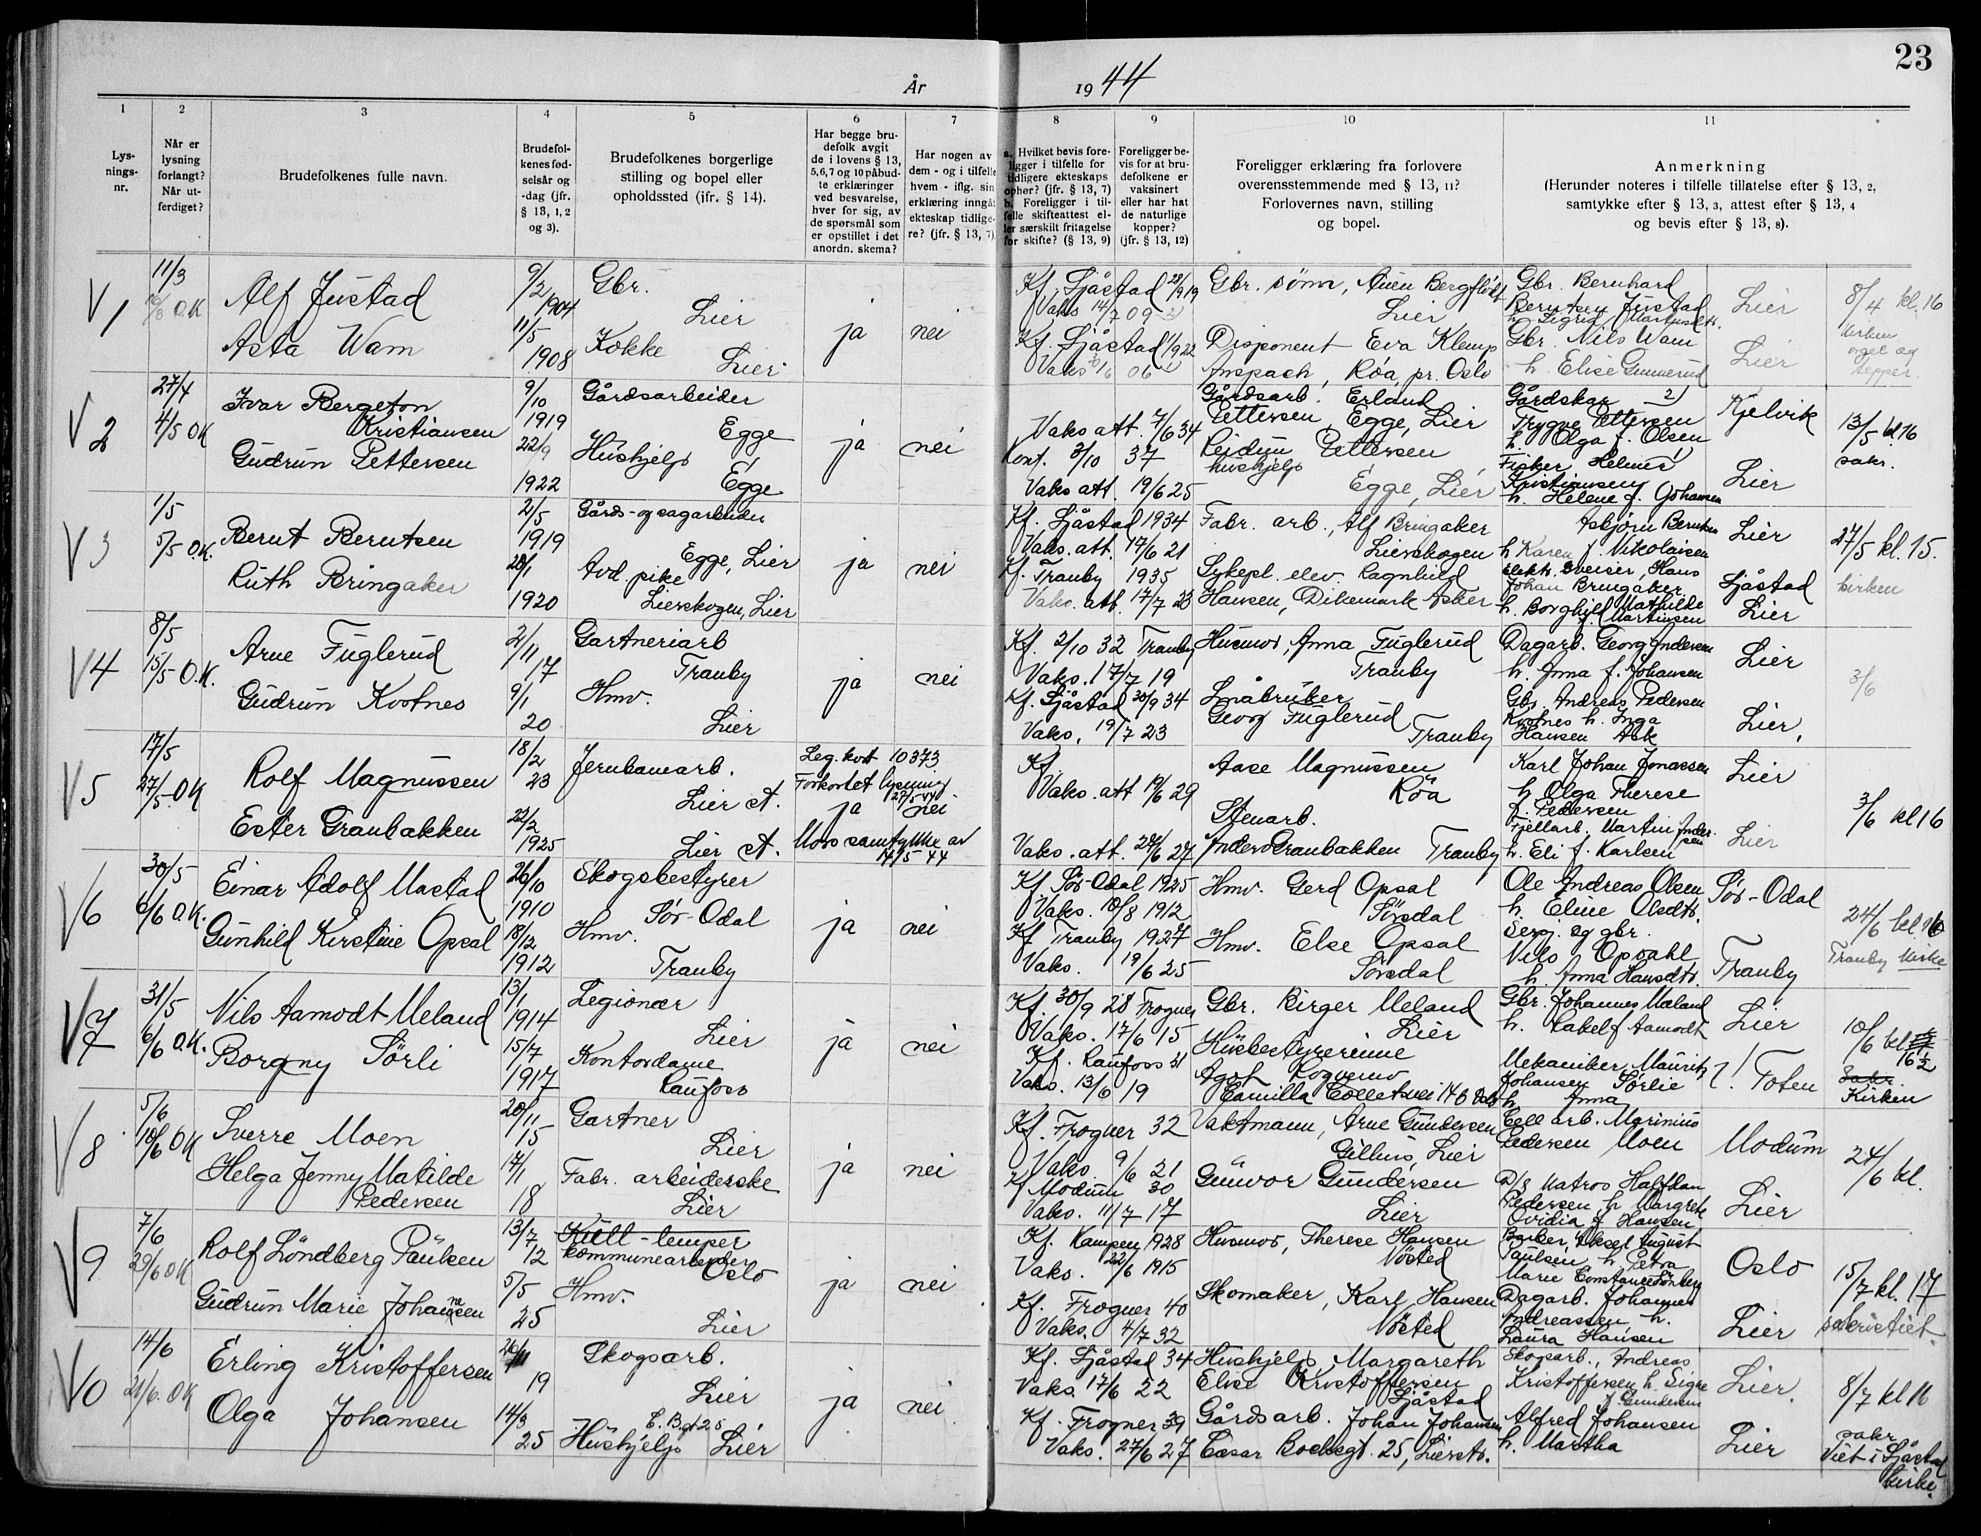 År
19 44
23
1
2
3
4
5
6
7
8
9
10
11
Lys-
nings-
nr.
Når er
lysning
forlangt?
Når ut-
ferdiget?
Brudefolkenes fulle navn.
Brudefol-
kenes fød-
selsår og
-dag (jfr.
§ 13, 1, 2
og 3).
Brudefolkenes borgerlige
stilling og bopel eller
opholdssted (jfr. § 14).
Har begge bru-
defolk avgit
de i lovens § 13,
5,6,7 og 10 påbud-
te erklæringer
ved besvarelse,
hver for sig, av
de spørsmål som
er opstillet i det
anordn. skema?
Har nogen av
dem - og i tilfelle
hvem - iflg. sin
erklæring inngåt
ekteskap tidlige-
re? (jfr. § 13, 7)
a. Hvilket bevis fore-
ligger i tilfelle for
tidligere ekteskaps
ophør? (jfr. § 13, 7)
b. Foreligger i til-
felle skifteattest el-
ler særskilt fritagelse
for skifte? (§ 13, 9)
Foreligger be-
vis for at bru-
defolkene er
vaksinert
eller har hat
de naturlige
kopper?
(jfr. § 13, 12)
Foreligger erklæring fra forlovere
overensstemmende med § 13, 11?
Forlovernes navn, stilling
og bopel.
Anmerkning
(Herunder noteres i tilfelle tillatelse efter § 13, 2,
samtykke efter § 13, 3, attest efter § 13, 4
og bevis efter § 13, 8).
V 1
11/3
O.K
Alf Justad
Asta Wam
9/2 1904
11/5 1908
Gbr.
Lier
Kokke
Lier
ja
nei
Kf. Sjåstad 28/9 19
Vaks 14/7 09
Kf. Sjåstad 1/9 22
Vaks 06
Gbr. sønn, Auen Bergflødt
Lier
Disponent Eva Klemp
Anspach, Röa, pr. Oslo
Gbr. Bernhard
Berntsen Justad
h. Sigrid
Gbr. Nils Wam
h. Elise Gunnerud
Lier
Lier
8/4 kl. 16
Kirken
orgel og
tepper.
V 2
27/4
4/5 OK
Ivar Bergeton
Kristiansen
Gudrun Pettersen
9/10
1919
22/9
1922
Gårdsarbeider
Egge
Hushjelp
Egge
ja
nei
Vaks att. 7/6 34
Konf. 3/10 37
Vaks att. 19/6 25
Gårdsarb. Erland
Pettersen, Egge, Lier
Reidun Pettersen
hushjelp
Egge, Lier
Gårdskar 2)
Trygve Pettersen
h. Olga f. Olsen
Fisker Helmer
Kristiansen
h. Helene f. Johansen
Kjelvik
Lier
13/5 kl. 16
sakr.
V 3
1/5
5/5 O.K.
Bernt Berntsen
Ruth Bringaker
2/5
1919
28/1
1920
Gårds- og sagarbeider
Egge, Lier
Avd. pike
Lierskogen, Lier
ja
nei
Kf. Sjåstad 1934
Vaks. att. 17/6 21
Kf. Tranby 1935
Vaks. att. 17/7 23
Fabr. arb., Alf Bringaker
Lierskogen
Sykepl. elev. Ragnhild
Hansen, Dikemark Asker
Asbjørn Berntsen
h Karen f. Nikolaisen
Elektr. sveiser, Hans
Johan Bringaker
h. Borghild Mathilde
f. Martinsen
Lier
Sjåstad
Lier
27/5 kl. 15.
kirken
V 4
8/5
15/5 - O.K.
Arne Fuglerud
Gudrun Kvotnes
2/11
17
9/1
20
Gartneriarb
Tranby
Hmv.
Lier
ja
nei
Kf. 2/10 32 Tranby
Vaks. 17/7 19
Kf. Sjåstad 30/9 34
Vaks. 19/7 23
Husmor, Anna Fuglerud
Tranby
Småbruker
Georg Fuglerud
Tranby
Dagarb. Georg Andersen
h. Anna f. Johansen
Gbr. Andreas Pedersen
Kvotnes h. Inga
Hansen Ask
Lier
Lier.
3/6
V 5
17/5
27/5 - OK
Rolf Magnussen
Ester Granbakken
18/2
23
22/2
1925
Jernbanearb.
Lier st.
Lier st.
Leg. kort 10373
Forkortet lysning
27/5-44
ja
nei
Mors samtykke av
14/5 44
Kf.
Vaks. att 19/6 29
Vaks. att. 24/6 27
Aase Magnussen
Röa
Stenarb.
Anders Granbakken Tranby
Karl Johan Jonassen
h Olga Therese
f. Pedersen
Fjellarb. Martin Ander-
sen
h. Eli f. Karlsen
Lier
Lier
3/6 kl 16
V 6
30/5
6/6 O.K.
Einar Adolf Mastad
Gunhild Kirstine Opsal
26/10
1910
18/12
1912
Skogsbestyrer
Sør-Odal
Hmv.
Tranby
ja
nei
Kf Sør-Odal 1925
Vaks. 18/8 1912
Kf Tranby 1927
Vaks. 19/6 25
Hmv. Gerd Opsal
Sørsdal
Hmv. Else Opsal
Sørsdal
Ole Andreas Olsen
h. Eline Olsdtr.
Serg. og gbr.
Nils Opsahl
h. Anna Hansdtr.
Sør-Odal
Tranby
24/6 kl. 16
Tranby kirke
V 7
31/5
6/6 O.K.
Nils Aamodt Meland
Borgny Sörli
13/1
1914
15/7
1917
Legionær
Lier
Kontordame
Raufoss
ja
nei
Kf. 30/9 28 Frogner
Vaks. 17/6 15
Kf. Raufoss 31
Vaks. 13/6 19
Gbr. Birger Meland
Lier
Husbestyrerinne
Agot Rognmo
Camilla Colletsvei 14 B Oslo
Gbr. Johannes Meland
h. Rakel f Aamodt
Mekaniker Mauritz
Johansen Sörlie
h. Anna
Lier
Toten
10/6 kl
16½
Sakr.
Kirken
V 8
5/6
10/6 OK
Sverre Moen
Helga Jenny Matilde
Pedersen
20/11
15
17/1
18
Gartner
Lier
Fabr. arbeiderske
Lier
ja
nei
Kf. Frogner 32
Vaks. 9/6 21
Kf Modum 30
Vaks. 11/7 17
Vaktmann, Arne Gundersen
Gilhus, Lier
Gunvor Gundersen
Lier
Cell arb. Marinius
Pedersen Moen
D/S Matros Halfdan
Pedersen h Margrete
Ovidia f Hansen
Modum
Lier
24/6 kl.
V 9
7/6
29/6 OK
Rolf Löndberg Paulsen
Gudrun Marie Johansen
13/7
12
5/5
25
Kull-lemper
kommunearbeider
Oslo
Hmv.
Lier
ja
nei
Kf. Kampen 1928
Vaks. 22/6 1915
Kf. Frogner 40
Vaks. 4/7 32
Husmor, Therese Hansen
Nøsted
Skomaker, Karl Hansen
Nøsted
Barber, Aksel August
Paulsen h Petra
Marie Constance
Dagarb. Johannes
Andreassen, h.
Laura Hansen
Oslo
Lier
15/7 kl. 17
sakristiet
V 0
14/6
21/6. OK
Erling Kristoffersen
Olga Johansen
19
14/3
25
Skogsarb.
Lier
C. B gt 25
Hushjelp Lier
ja
nei
Kf. Sjåstad 34
Vaks. 17/6 22
Kf. Frogner 39
Vaks. 27/6 27
Hushjelp Margareth
Elise Kristoffersen
Sjåstad
Gårdsarb. Johan Johansen
Cæsar Boeksgt. 25, Lierstr.
Skogsarb., Andreas
Kristoffersen h. Signe
f Gundersen
Alfred Johansen
h. Martha
Lier.
Lier
8/7 kl 16
sakr
Viet i Sjåstad
kirke.